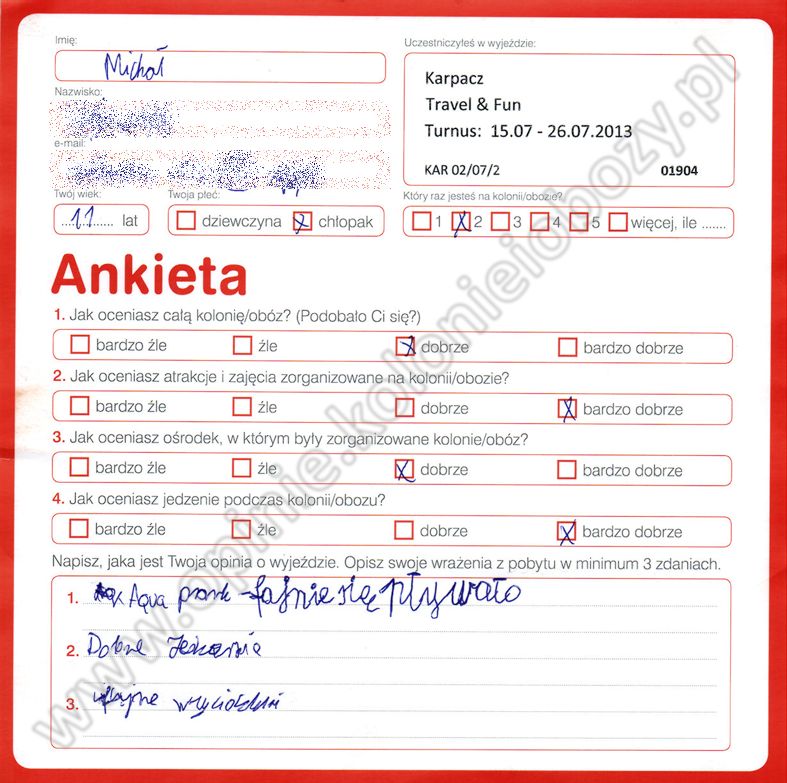 Imię:
Michał
Uczestniczyłeś w wyjeździe:
Karpacz
Travel & Fun
Turnus: 15.07 - 26.07.2013
KAR 02/07/2 01904
Nazwisko:
e-mail:
Twój wiek:
11 lat
Twoja płeć:
dziewczyna x chłopak
Który raz jesteś na kolonii/obozie?
1 x 2 3 4 5 więcej, ile .......
Ankieta
1. Jak oceniasz całą kolonię/obóz? (Podobało Ci się?)
bardzo źle źle x dobrze bardzo dobrze
2. Jak oceniasz atrakcje i zajęcia zorganizowane na kolonii/obozie?
bardzo źle źle dobrze x bardzo dobrze
3. Jak oceniasz ośrodek, w którym były zorganizowane kolonie/obóz?
bardzo źle źle x dobrze bardzo dobrze
4. Jak oceniasz jedzenie podczas kolonii/obozu?
bardzo źle źle dobrze x bardzo dobrze
Napisz, jaka jest Twoja opinia o wyjeździe. Opisz swoje wrażenia z pobytu w minimum 3 zdaniach.
1. Aqua - fajnie się pływało
2. Dobre
3.
www.opinie.kolonieiobozy.pl